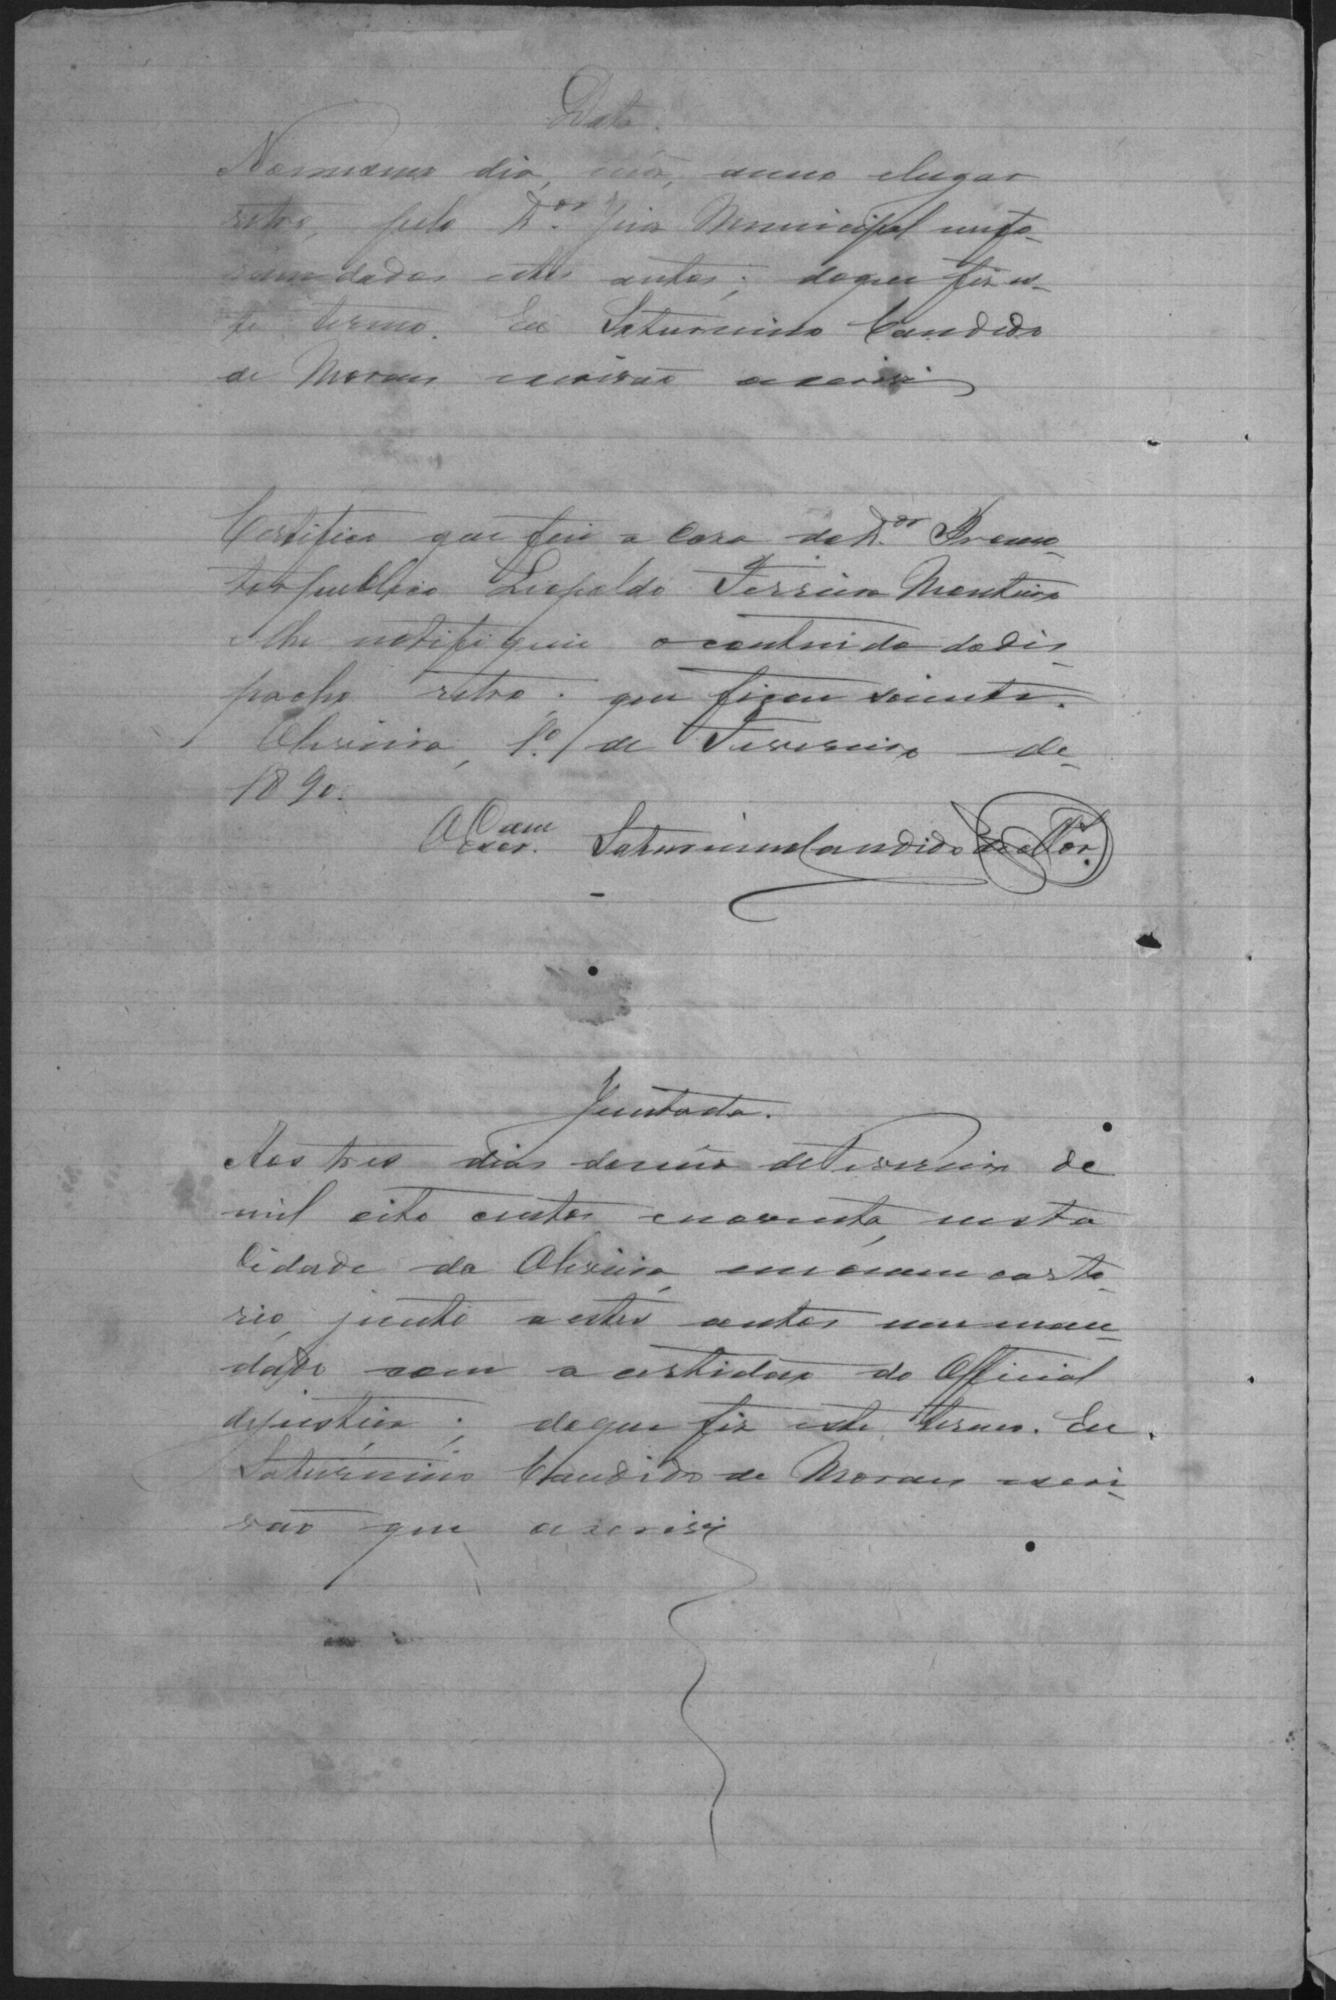 Data.
No mesmo dia, mês, anno e lugar
retro, pelo Dr. Juiz Municipal me fo-
ram dados estes autos; do que fiz es-
te termo. Eu Saturnino Candido
de Moraes escrivão o escrivi
Certifico que fui a casa do Dr. Promo-
tor publico Leopoldo Ferreira Monteiro
e lhe notifiquei o contheudo do dis-
pacho retro; que ficou sciente.
Oliveira, 1º de Fevereiro de
1890.
O Escr. Saturnino Candido de Mor.
Juntada.
Aos tres dias do mês de Fevereiro de
mil oito centos e noventa, nesta
Cidade da Oliveira, em o meu carto-
rio, junto a estes autos um man-
dado com a certidão do Official
de justiça; do que fiz este termo. Eu
Saturnino Candido de Moraes escri-
vão que o escrivi